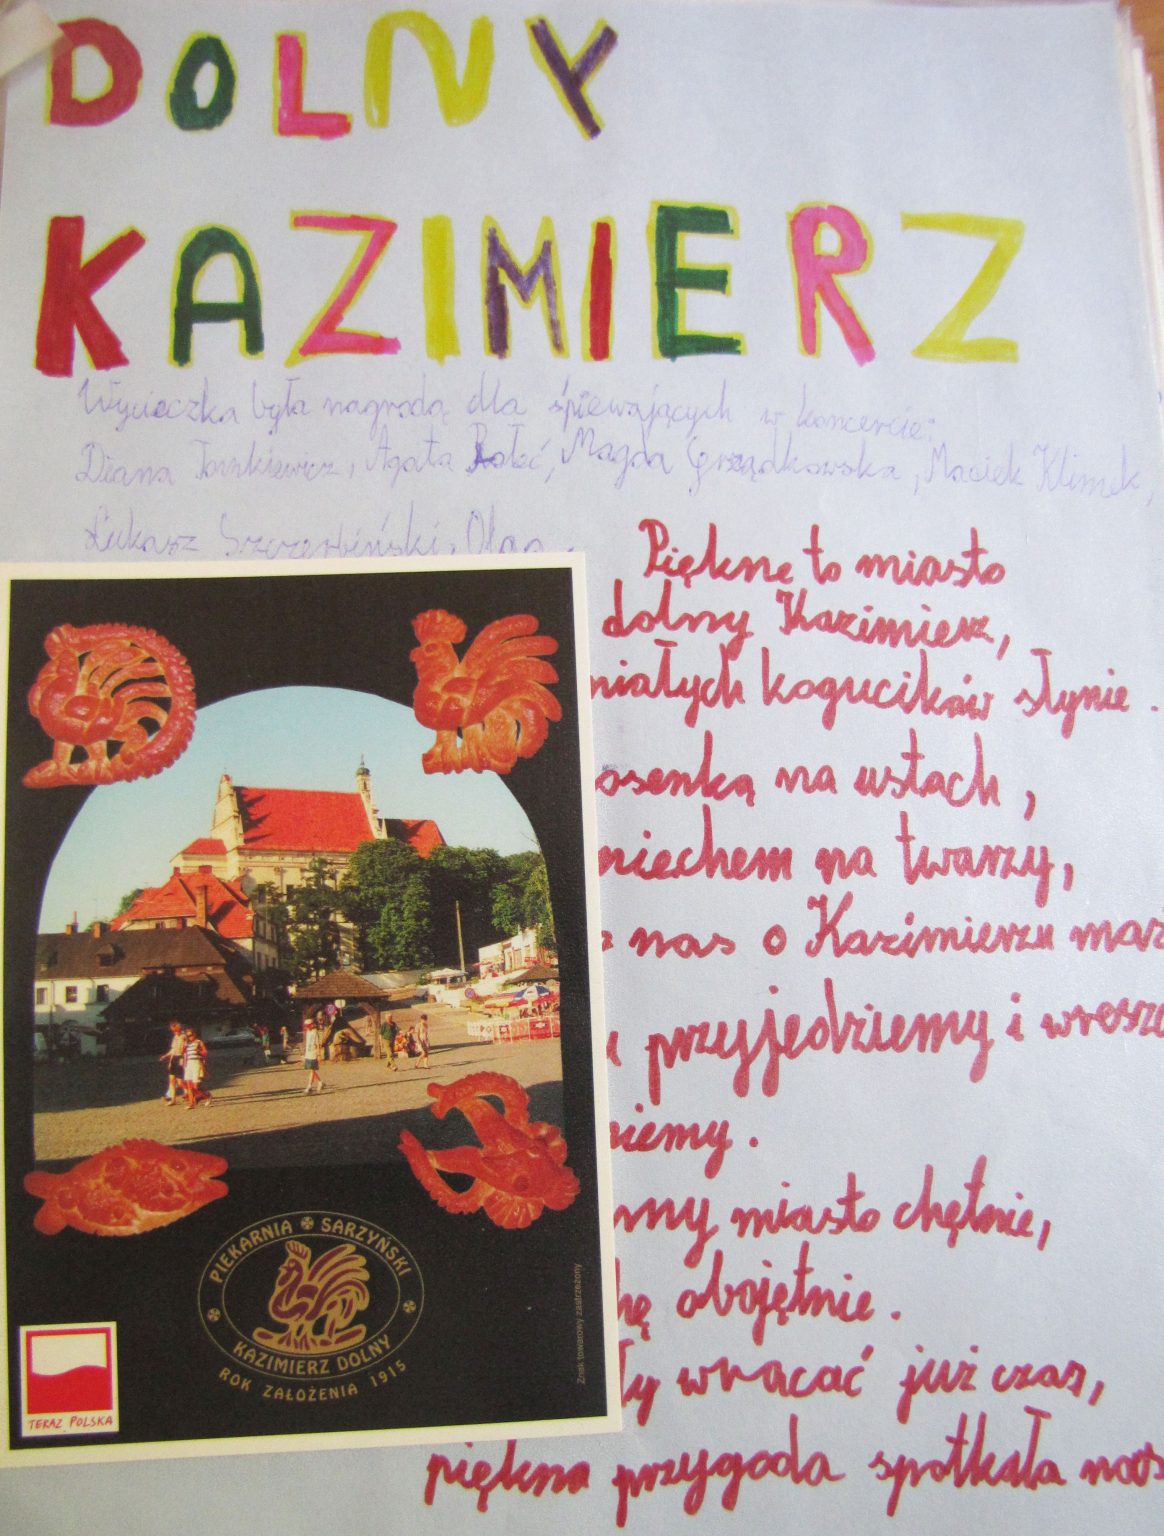 DOLNY
KAZIMIERZ
Wycieczka była nagrodą dla śpiewających w koncercie:
Diana Agata Magda Grządkowska, Maciek Klimek,
Łukasz Szczerbiński, Olga
Piękne to miasto
dolny Kazimierz,
kogucików słynie.
na ustach,
na twarzy,
nas o Kazimierzu
przyjedziemy i
miasto chętnie,
obojętnie.
wracać już czas,
piękna przygoda spotkała nas
PIEKARNIA SARZYŃSKI
KAZIMIERZ DOLNY
ROK ZAŁOŻENIA 1915
Znak towarowy zastrzeżony
TERAZ POLSKA